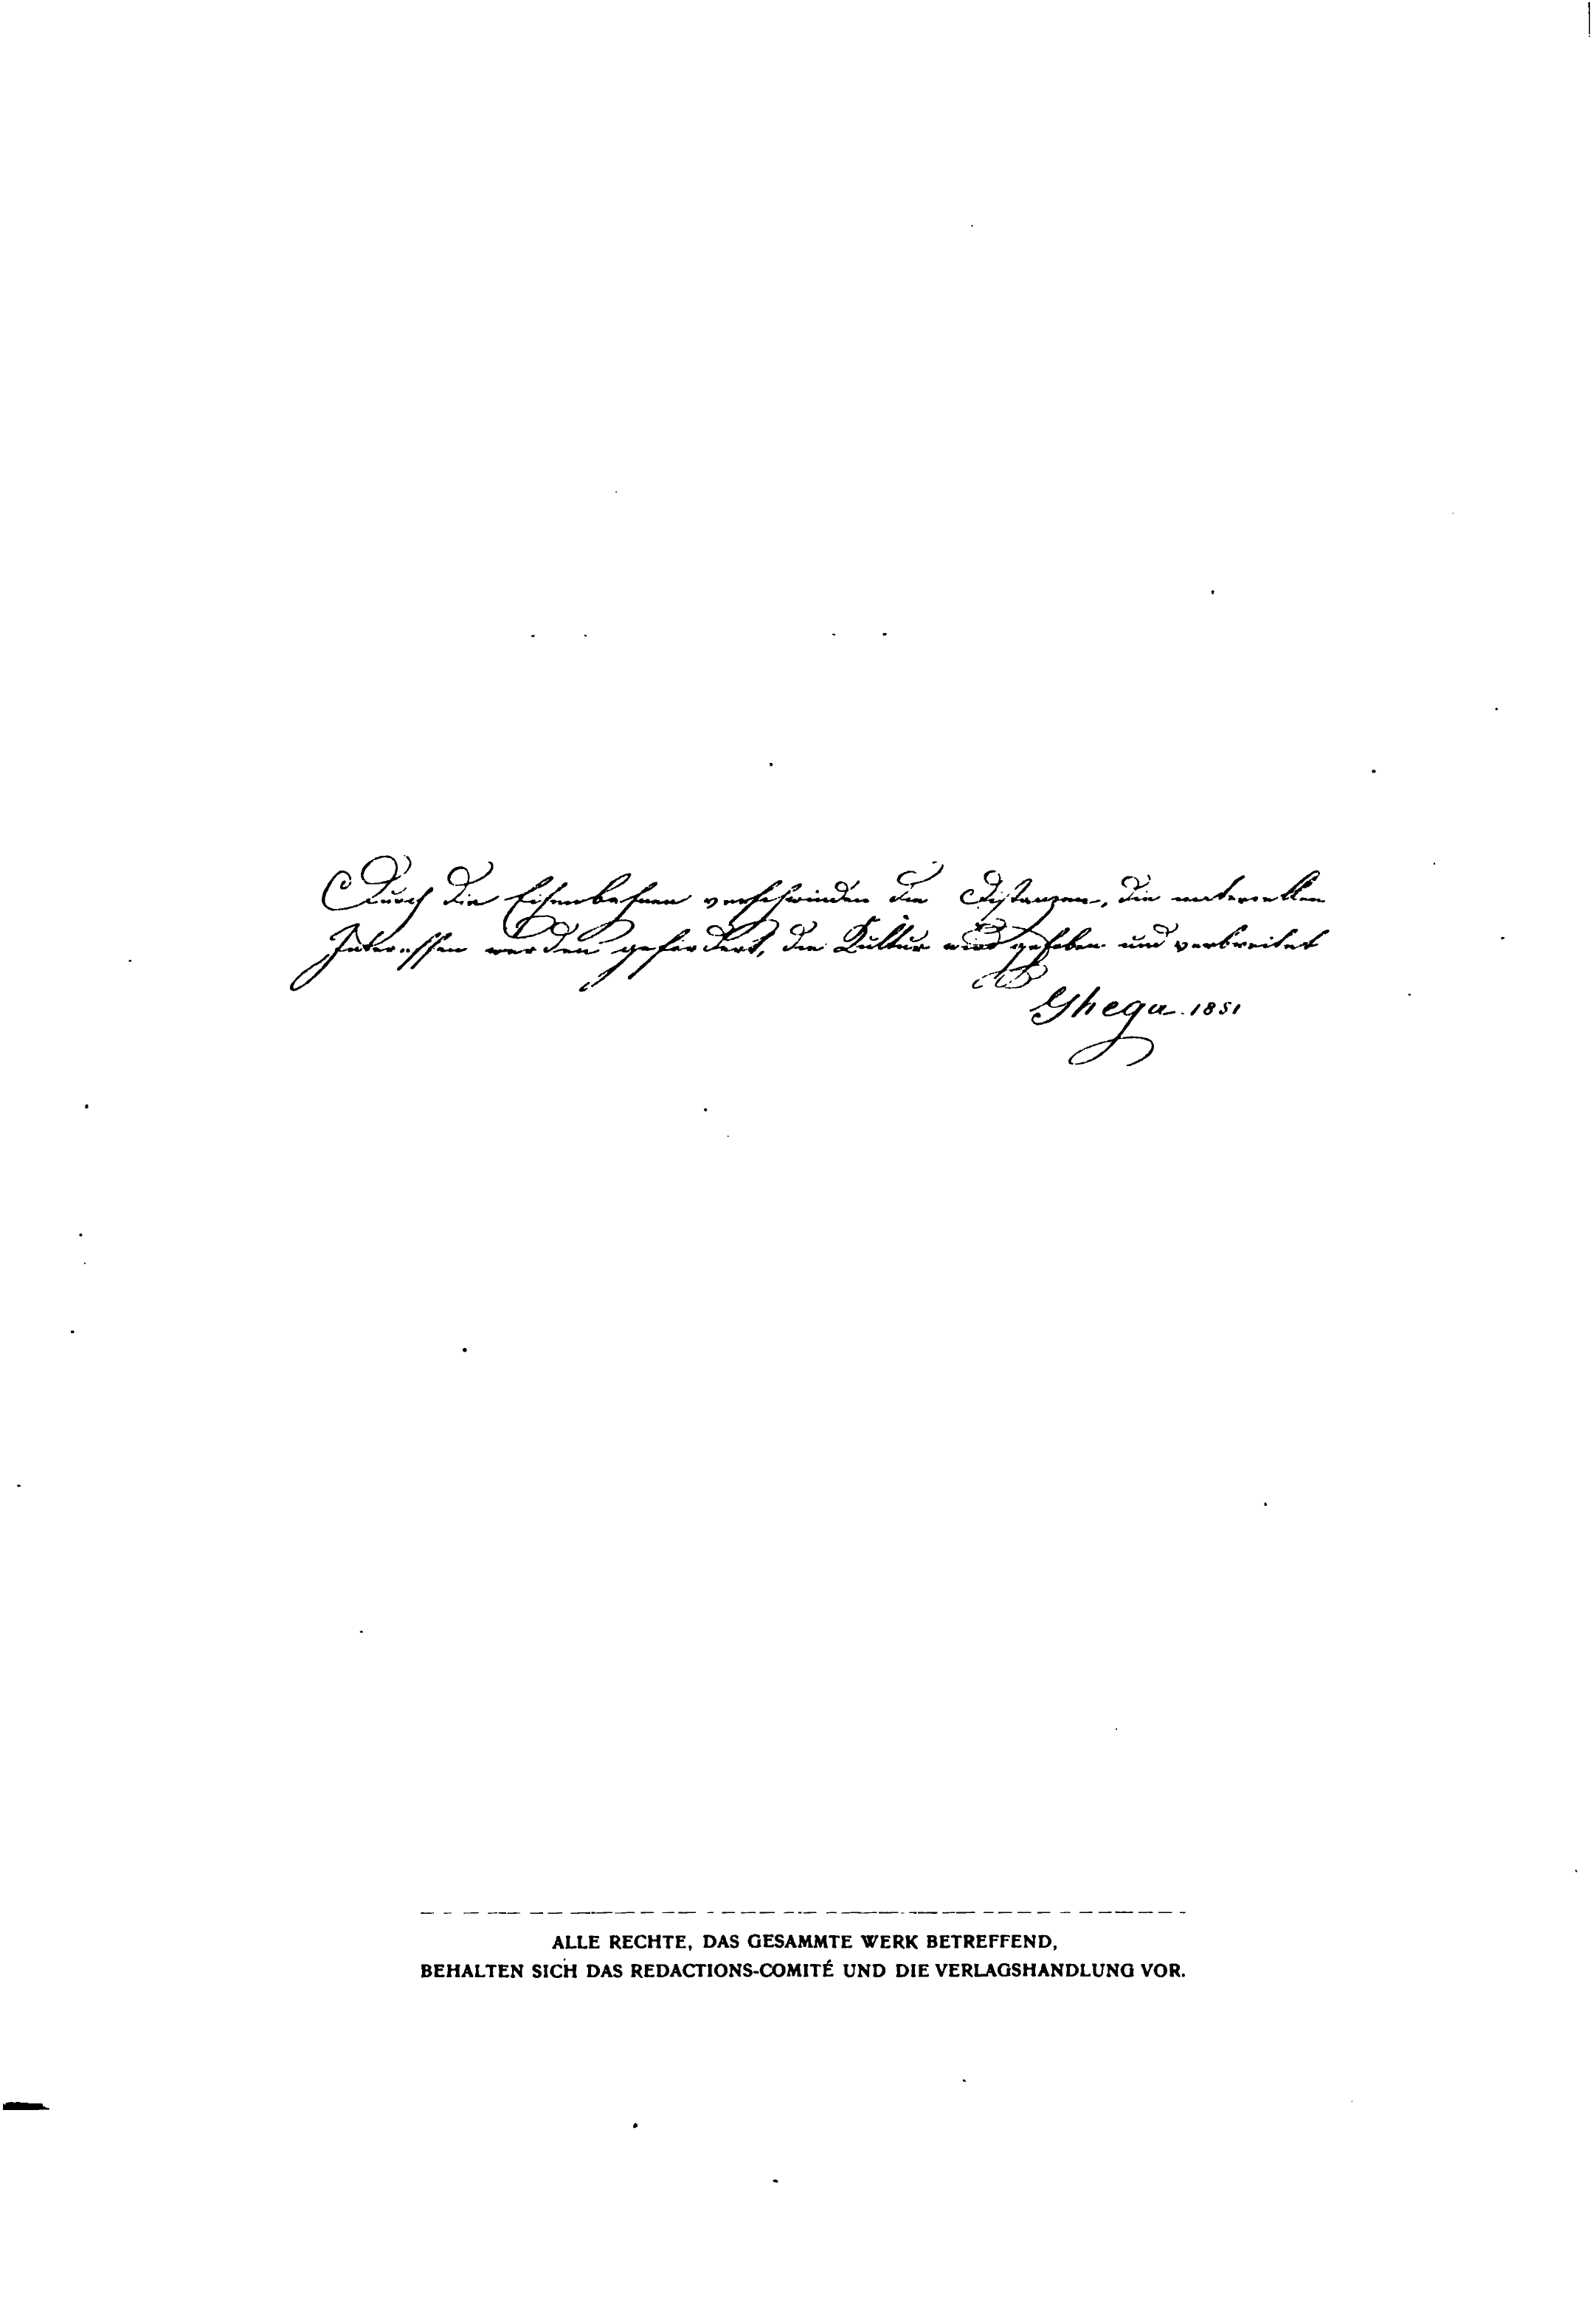 Durch die Eisenbahnen verschwinden die Distanzen, die materiellen
Interessen werden gefördert, die Kultur wird gehoben und verbreitet
Ghega 1851
ALLE RECHTE, DAS GESAMMTE WERK BETREFFEND,
BEHALTEN SICH DAS REDACTIONS-COMITÉ UND DIE VERLAGSHANDLUNG VOR.